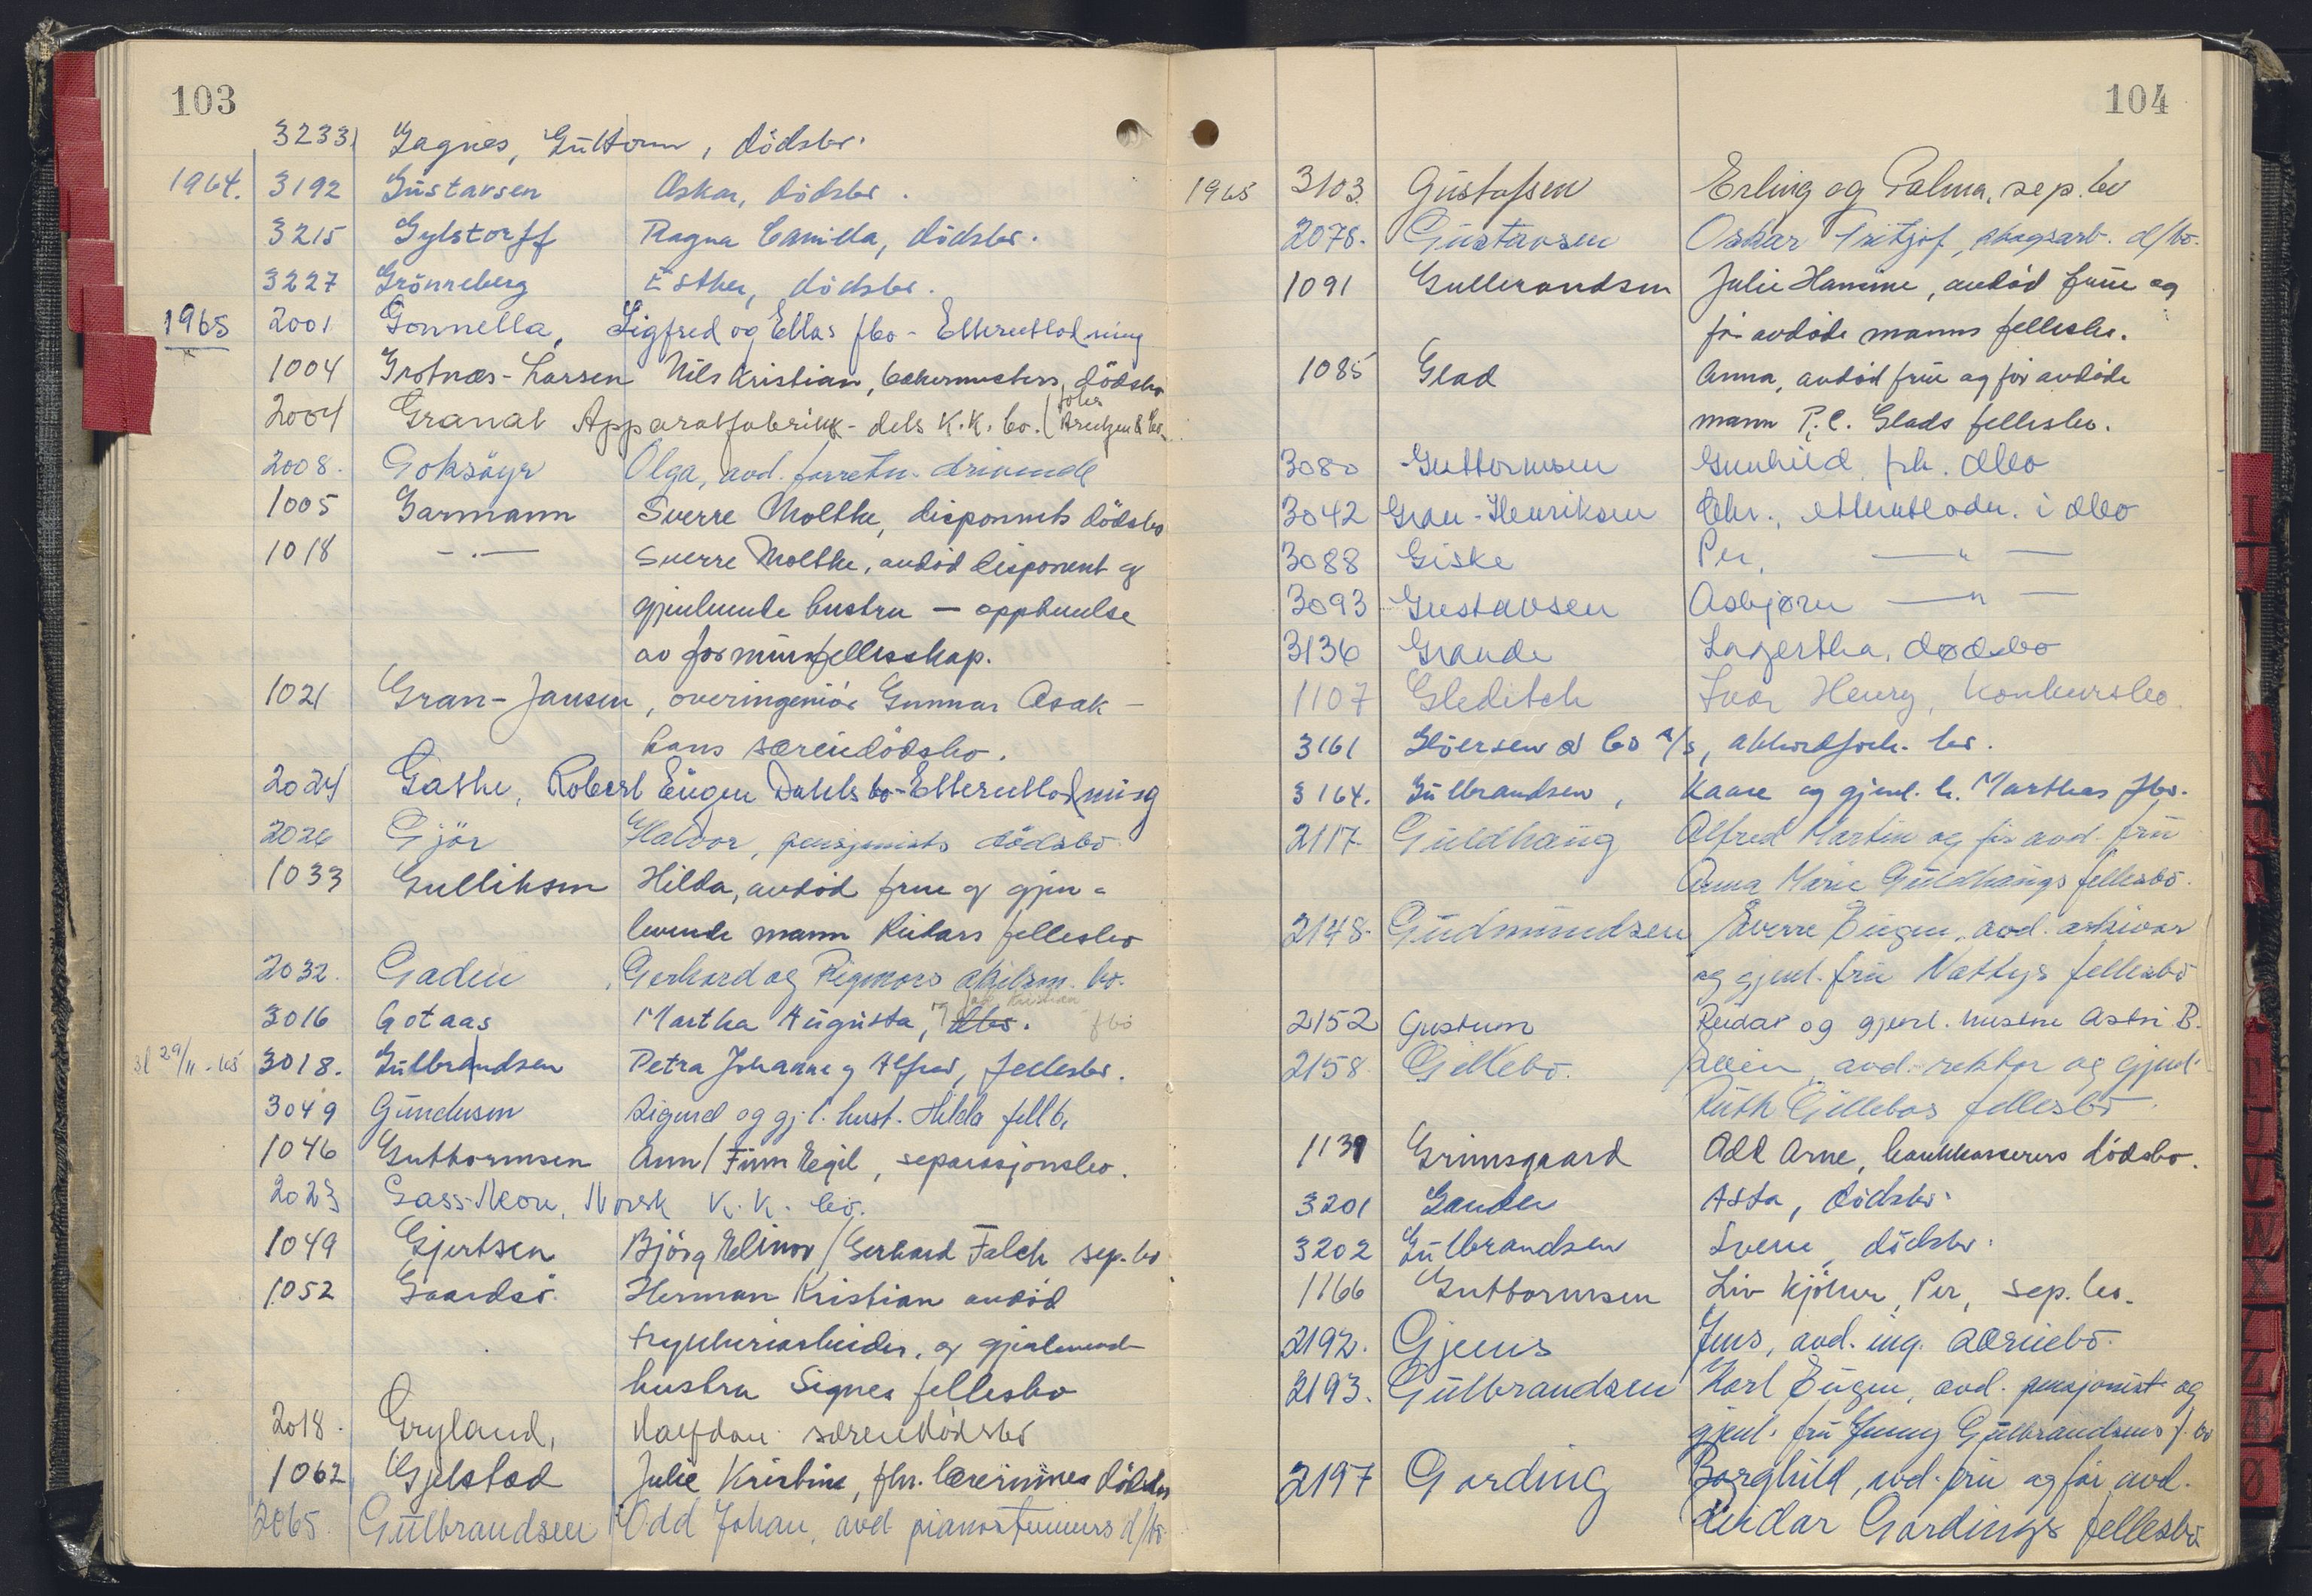 103
3233 Gagnes, Guttorm, dödsbo.
1964. 3192 Gustavsen Oskar, dödsbo.
3215 Gylstorff Ragna Camilla, dödsbo.
3227 Grönneberg Esther, dödsbo.
1965 2001 Gonnella, Sigfred og Ellas fbo - Etterutlodning
1004 Grotnæs-Larsen Nils Kristian, bakermesters, dödsbo
2004 Granat Apparatfabrikk - dets K.K. bo. (Johs
2008. Goksöyr Olga, avd. forretn. drivende
1005 Garmann Sverre Moltke, disponents dödsbo
1018 -"- Sverre Moltke, avdöd disponent og
gjenlevende hustru — opphevelse
av formuesfellesskap.
1021 Gran-Jansen, overingeniör Gunnar Isak -
hans særeiedödsbo.
2024 Gathe, Robert Eugen Dahls bo - Etterutlodning
2026 Gjör Halvor, pensjonists dödsbo
1033 Gulliksen Hilda, avdöd frue og gjen-
levende mann Reidars fellesbo
2032. Gaden Gerhard og Rigmors skilsm. bo.
og Kristian
3016 Gotaas Martha Augusta, dbo. fbo
29/11-65 3018. Gulbrandsen Petra Johanne og Alfred, fellesbo.
3049 Gundersen Sigurd og gj.l. hust. Hilda fellb.
1046 Guttormsen Ann / Finn Egil, separasjonsbo.
2023 Gass-Neon, Norsk K.K. bo.
1049 Gjertsen Björg Elinor / Gerhard Falch sep.bo
1052 Gaardsö Herman Kristian avdöd
trykkeriarbeider, og gjenlevende
hustru Signes fellesbo
2018. Gryland, Halfdan særeiedödsbo
1062 Gjelstad Julie Kristine, fhv. lærerinnes dödsbo
2065. Gulbrandsen Odd Johan, avd. pianostemmers d/bo
104
1965 3103. Gustafsen Erling og Palma, sep.bo
2078. Gustavsen Oskar Fritjof, skogsarb. d/bo.
1091 Gullerandsen Julie Hansine, avdöd frue og
för avdöde manns fellesbo.
1085 Glad Anna, avdöd frue og för avdöde
mann P.C. Glads fellesbo.
3080 Guttormsen Gunhild, frk. dbo
3042 Gran-Henriksen Chr., etterutlodn. i dbo
3088 Giske Per, —"—
3093 Gustavsen Asbjørn —"—
3136 Grande Lagertha, dødsbo
1107 Gleditsch Ivar Henry, Konkursbo.
3161 & Co a/s, akkordforh. bo.
3164. Gulbrandsen, Kaare og gjenl. h. Marthas fbo.
2117. Guldhaug Alfred Martin og för avd. fru
Anna Marie Guldhaugs fellesbo.
2148. Gudmundsen Sverre Eugen, avd. arkivar
og gjenl. fru Nattys fellesbo
2152 Reidar og gjenl. hustru Astri B.
2158 Gillebo. avd. rektor og gjenl.
Ruth Gillebos fellesbo.
1139 Grimsgaard Odd Arne, bankkasserers dödsbo.
3201 Asta, dödsbo.
3202 Gulbrandsen Sverre, dödsbo.
1166 Guttormsen Liv Per, sep.bo.
2192. Gjems Jens, avd. ing. særeiebo.
2193. Gulbrandsen Karl Eugen, avd. pensjonist og
gjenl. fru Jenny Gulbrandsens f.bo
2197 Gording Borghild, avd. fru og för avd.
Reidar Gordings fellesbo
I
V
W
X
Z
Æ
Ø